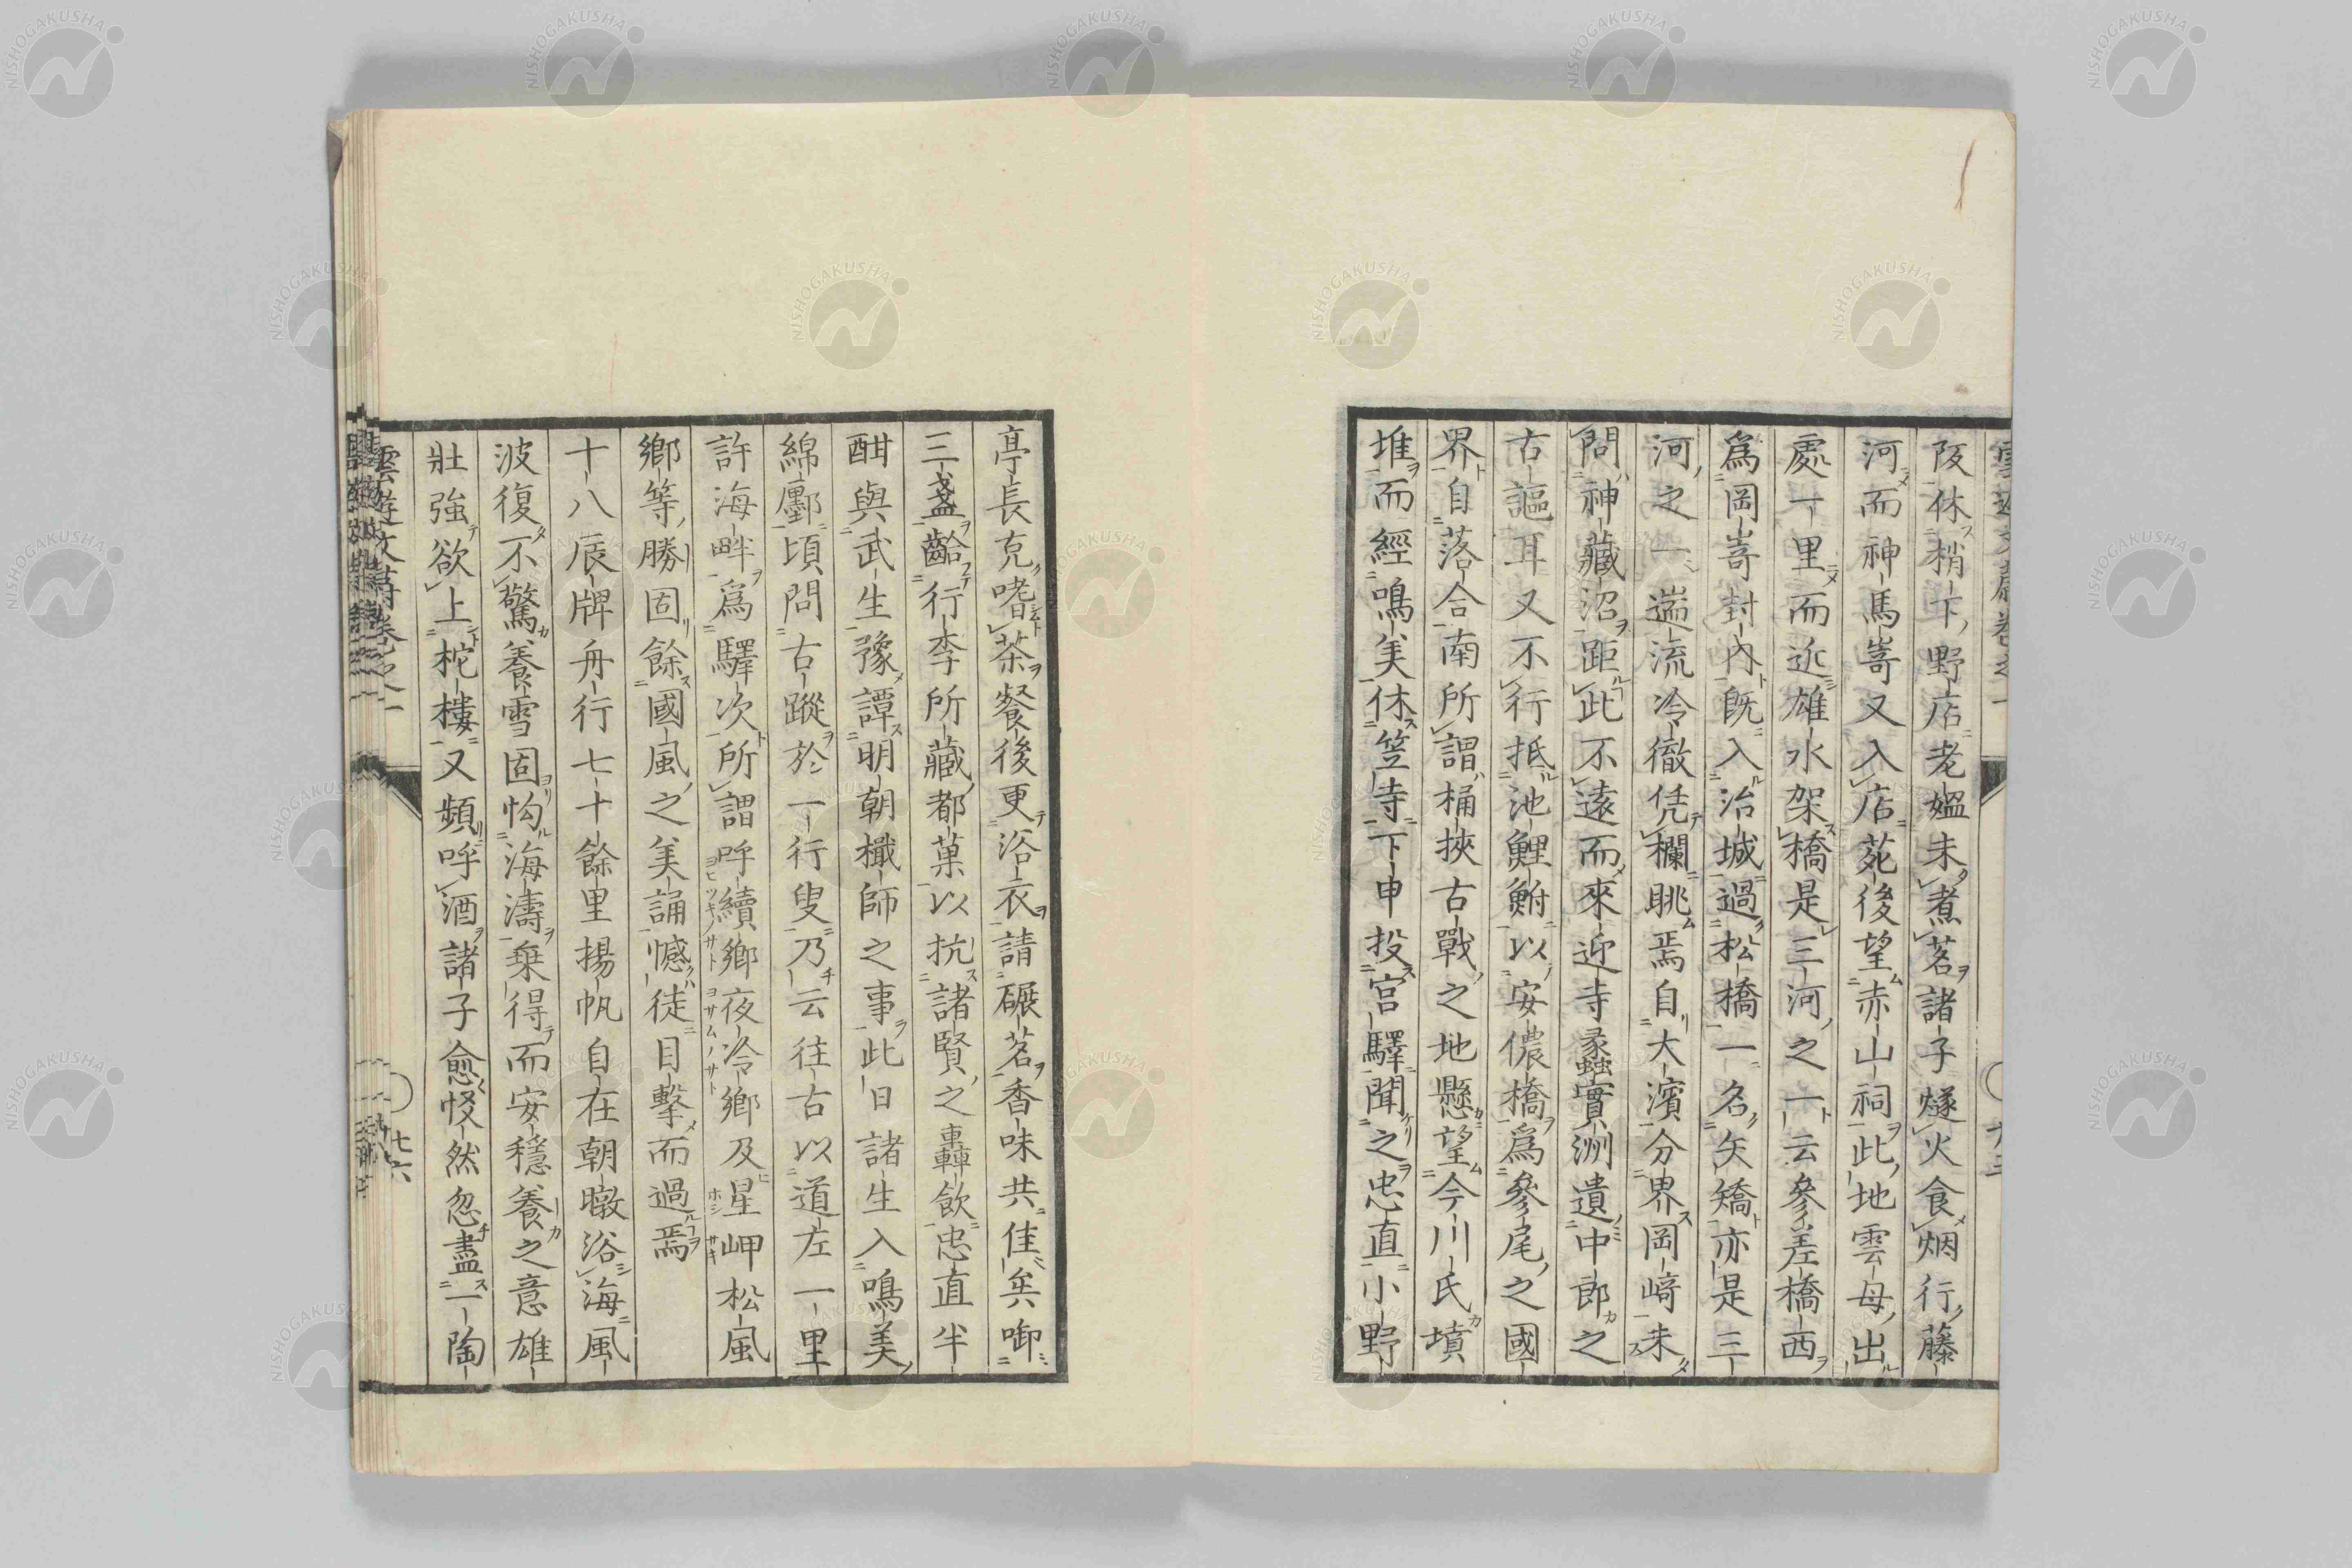 阪休梢下野店老媼未煮茗諸子燧火食烟行藤
河而神馬嵜又入店苑後望赤山祠此地雲母出
處一里而近雄水架橋是三河之一云參差橋西
爲岡嵜封內既入治城過松橋一名矢矯亦是三
河之一遄流冷徹凭欄眺焉自大濱分界岡﨑未
問神藏沼距此不遠而來迎寺蠡實洲遺中郎之
古謳耳又不行抵池鯉鮒以安儂橋爲參尾之國
界自落合南所謂桶挾古戰之地懸望今川氏墳
堆而經鳴美休笠寺下申投宮驛聞之忠直小野
亭長克嗜茶餐後更浴衣請碾茗香味共佳矣啣
三盞齡行李所藏都菓以抗諸賢之轟飲忠直半
酣與武生豫譚明朝檥師之事此日諸生入鳴美
綿鄽頃問古蹤於一行叟乃云往古以道左一里
許海畔爲驛次所謂呼續鄉夜冷鄉及星岬松風
ヨヒツキノサト ヨサムノサト ホシサキ
鄉等勝固餘國風之美誦憾徒目擊而過焉
十八辰牌舟行七十餘里揚帆自在朝暾浴海風
波復不驚養雪固恟海濤乗得而安穩養之意雄
壯強欲上柁樓又頻呼酒諸子愈悛然忽盡一陶
雲遊文蒿卷之一
七六
NISHOGAKUSHA